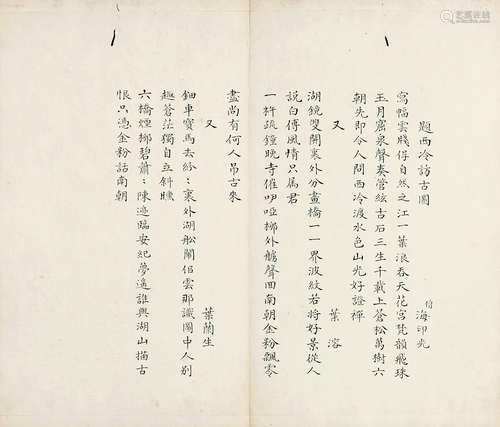 題西泠訪古圖
僧海印光
寫幅雲牋得自然之江一葉浪吞天花宮梵韻飛珠
玉月窟泉聲奏管絃古石三生千載上蒼松萬樹六
朝先即今人問西泠渡水色山光好證禪
又
葉溶
湖鏡雙開裏外分畫橋一一界波紋若將好景從人
說白傅風情只屬君
一杵疏鐘晚寺催咿啞柳外艣聲回南朝金粉飄零
盡尚有何人弔古來
又
葉蘭生
鈿車寶馬去紛〻裏外湖船鬧侶雲那識圖中人別
趣蒼茫獨自立斜曛
六橋煙柳碧蕭〻陳迹臨安紀夢遙誰與湖山描古
恨只憑金粉話南朝